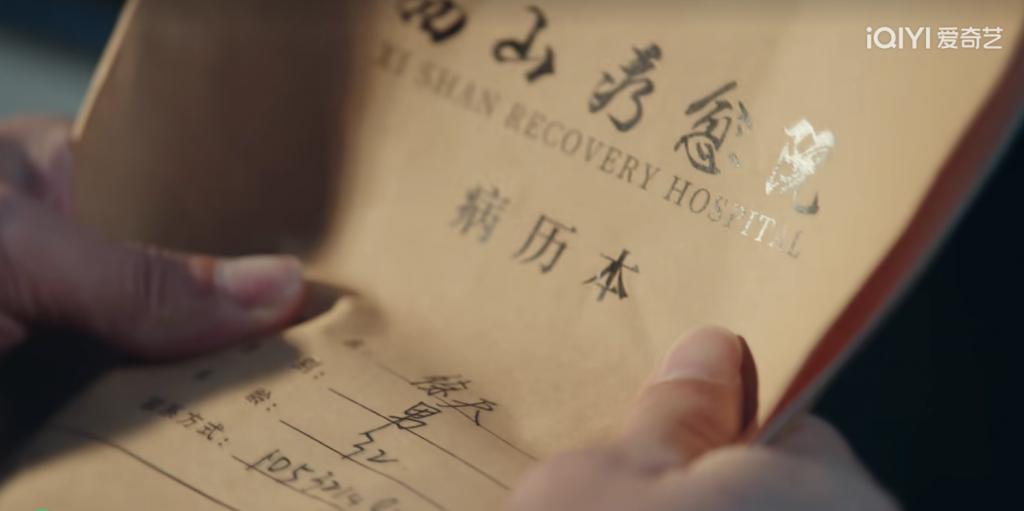 iQIYI 爱奇艺
西山疗愈院
XI SHAN RECOVERY HOSPITAL
病历本
徐天
别：男
龄：32
联系方式：